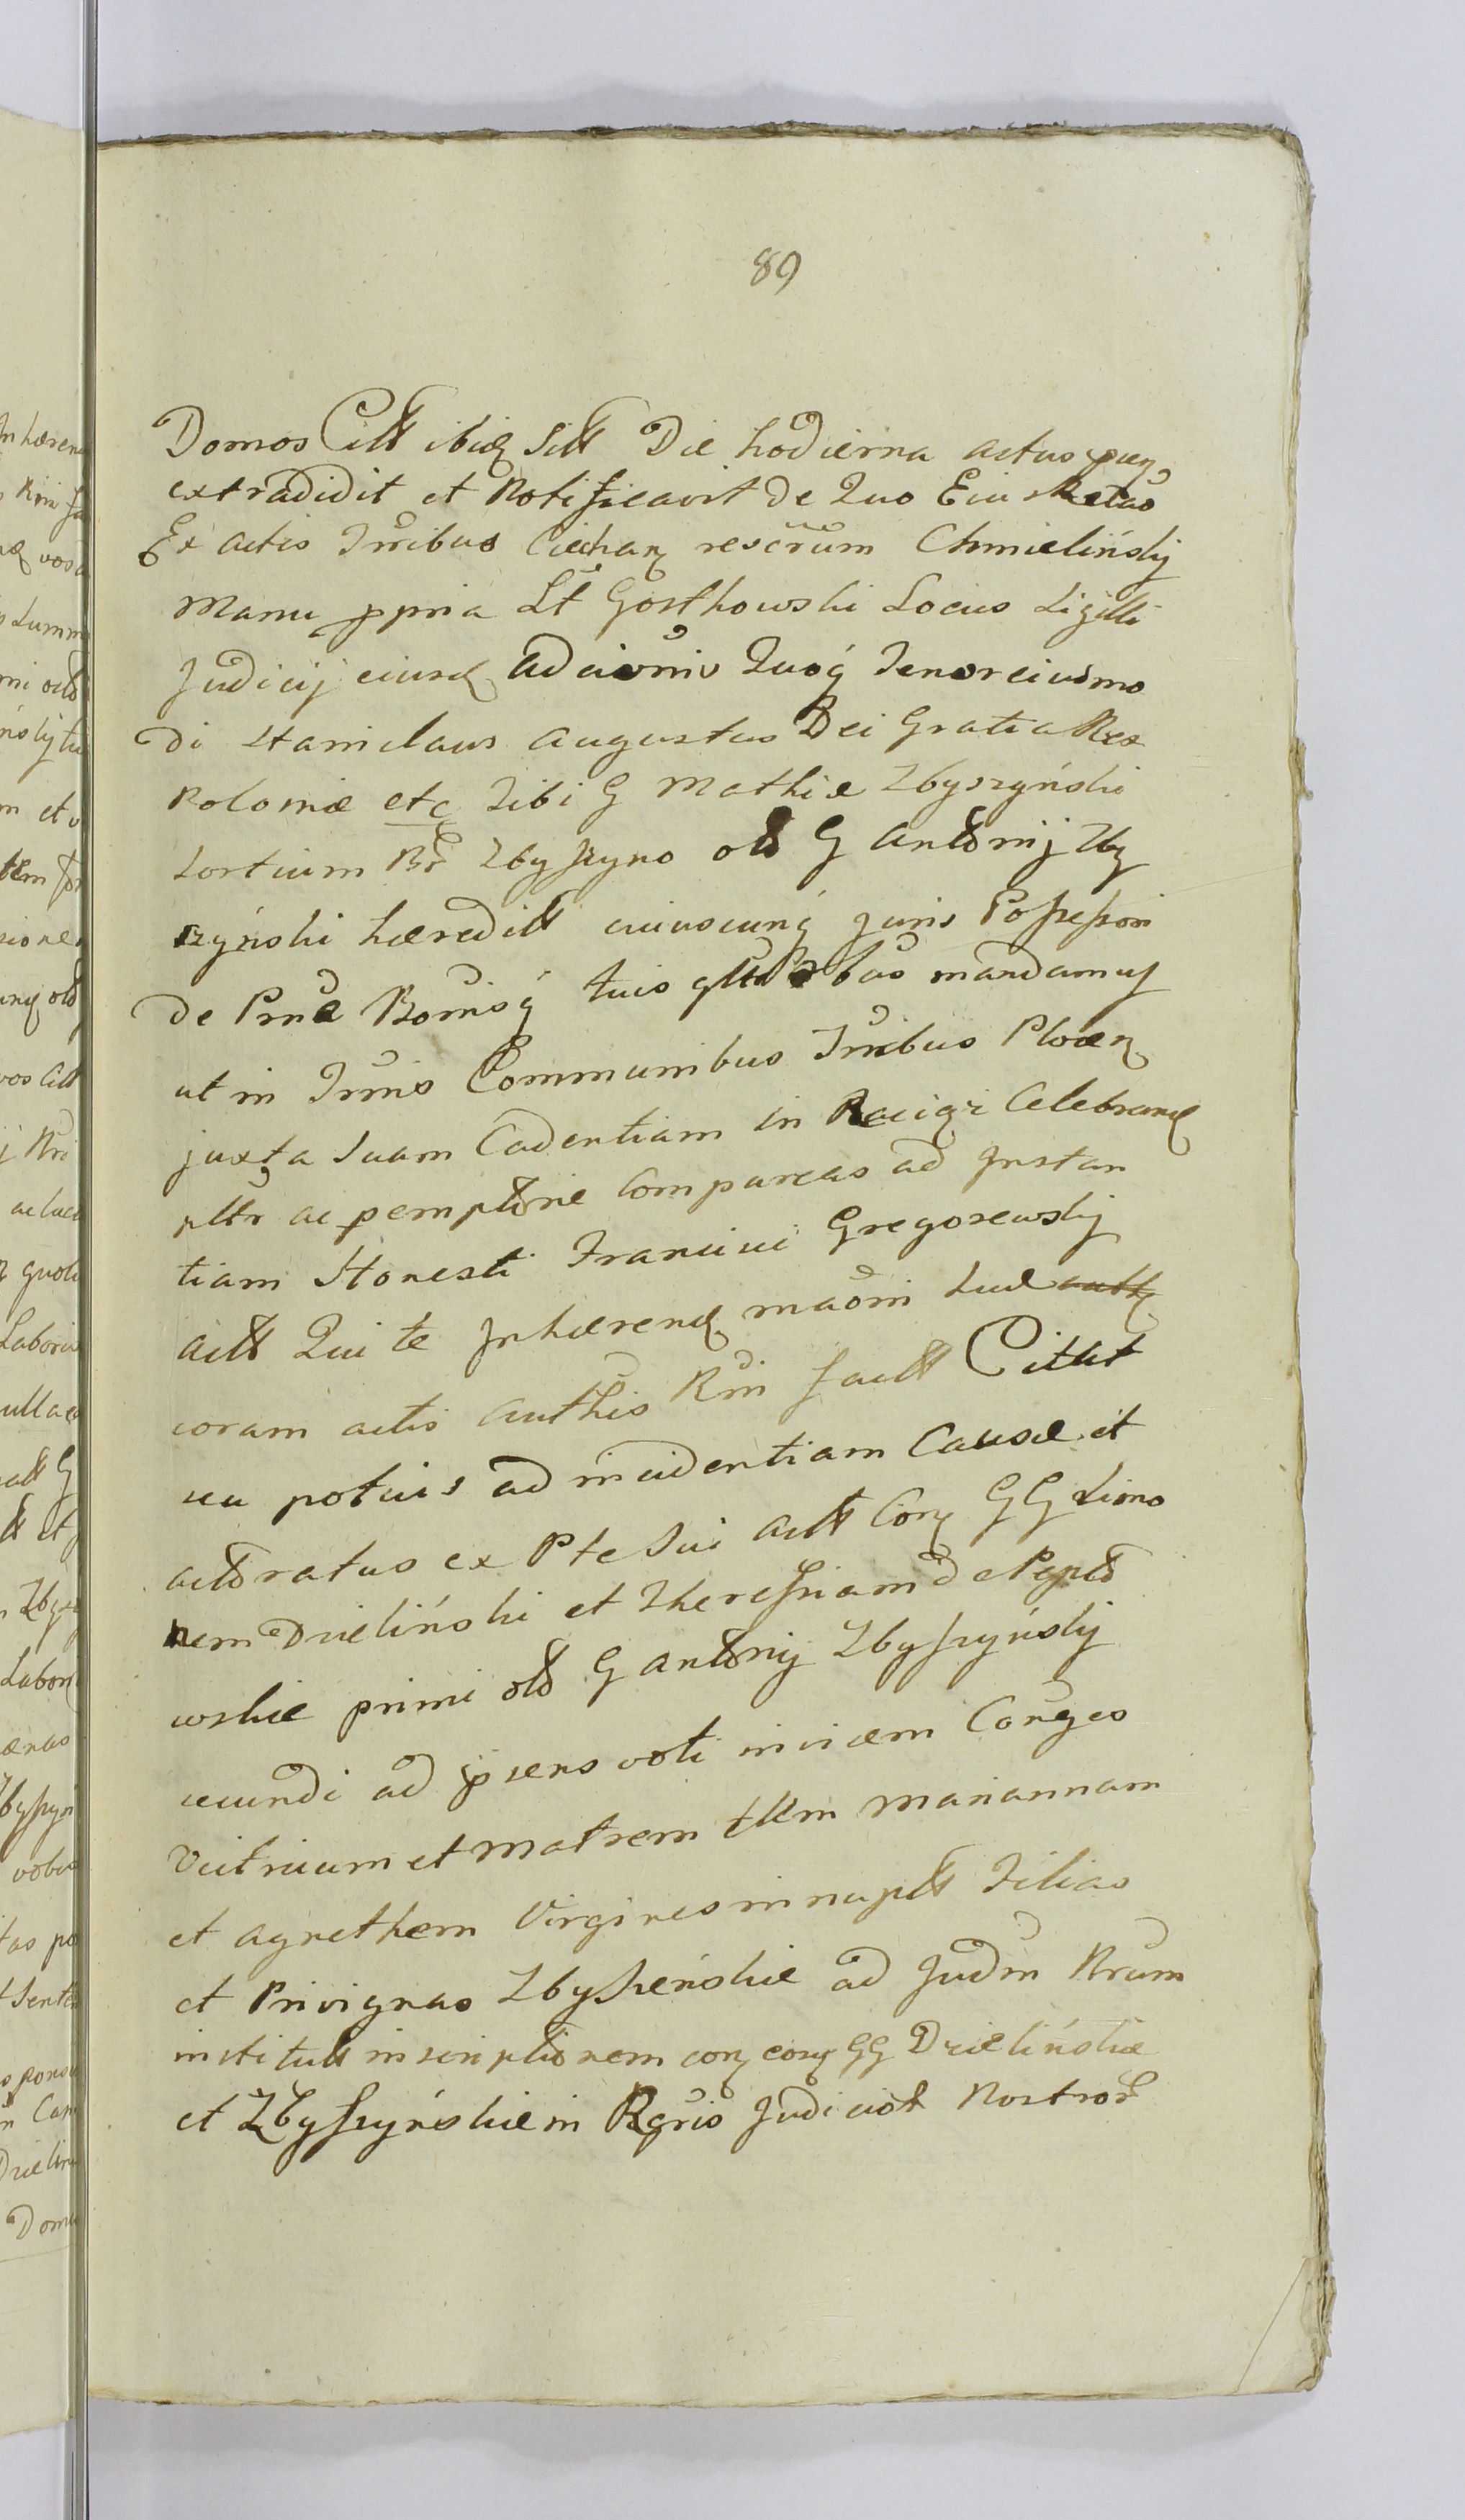 89
Domos Citt ibidz sitt Die hodierna actus praez
extradidit et Notificavit De Quo Eius Relatio
Ex actis Trribus Ciechanz rescrum Chmielińskij
Manu ppria Lt Gosthowski Locus Sigilli
Judicij eiusd Adcionis Quoq Tenor eiusmo
di Stanislaus Augustus Dei Gratia Rex
Poloniæ etc Tibi G Mathiæ Zbyszyński
Sortium Br Zbyszyno olo G Antonij Zby
szyński hæreditt cuiuscunq juris Possessori
De Prna Bonisq tuis mandamus
ut in Trmis Communibus Trribus Plocenz
juxta suam Cadentiam in Raciąż Celebrand
pltr ac pemptorie Compareas ad Instan
tiam Honesti Francisci Gregorewskij
actt Qui te Inhærend maoni suæ
coram actis authis Rni factt Citat
seu potius ad incidentiam Causæ it
actoratus ex Pte sui actt Conz GG Simo
nem Dzieliński et Theressiam de
wskie primi olo G Antonij Zbyszyńskij
secundi ad psens voti invicem Conges
Vitricum et Matrem tum Mariannam
et Agnethem Virgines innuptt Filias
et Privignas Zbyszeńskie ad Judm Nrum
institutt inscriptionem GG Dzielińskie
et Zbyszyńskie in Rgris Judicior Nostror